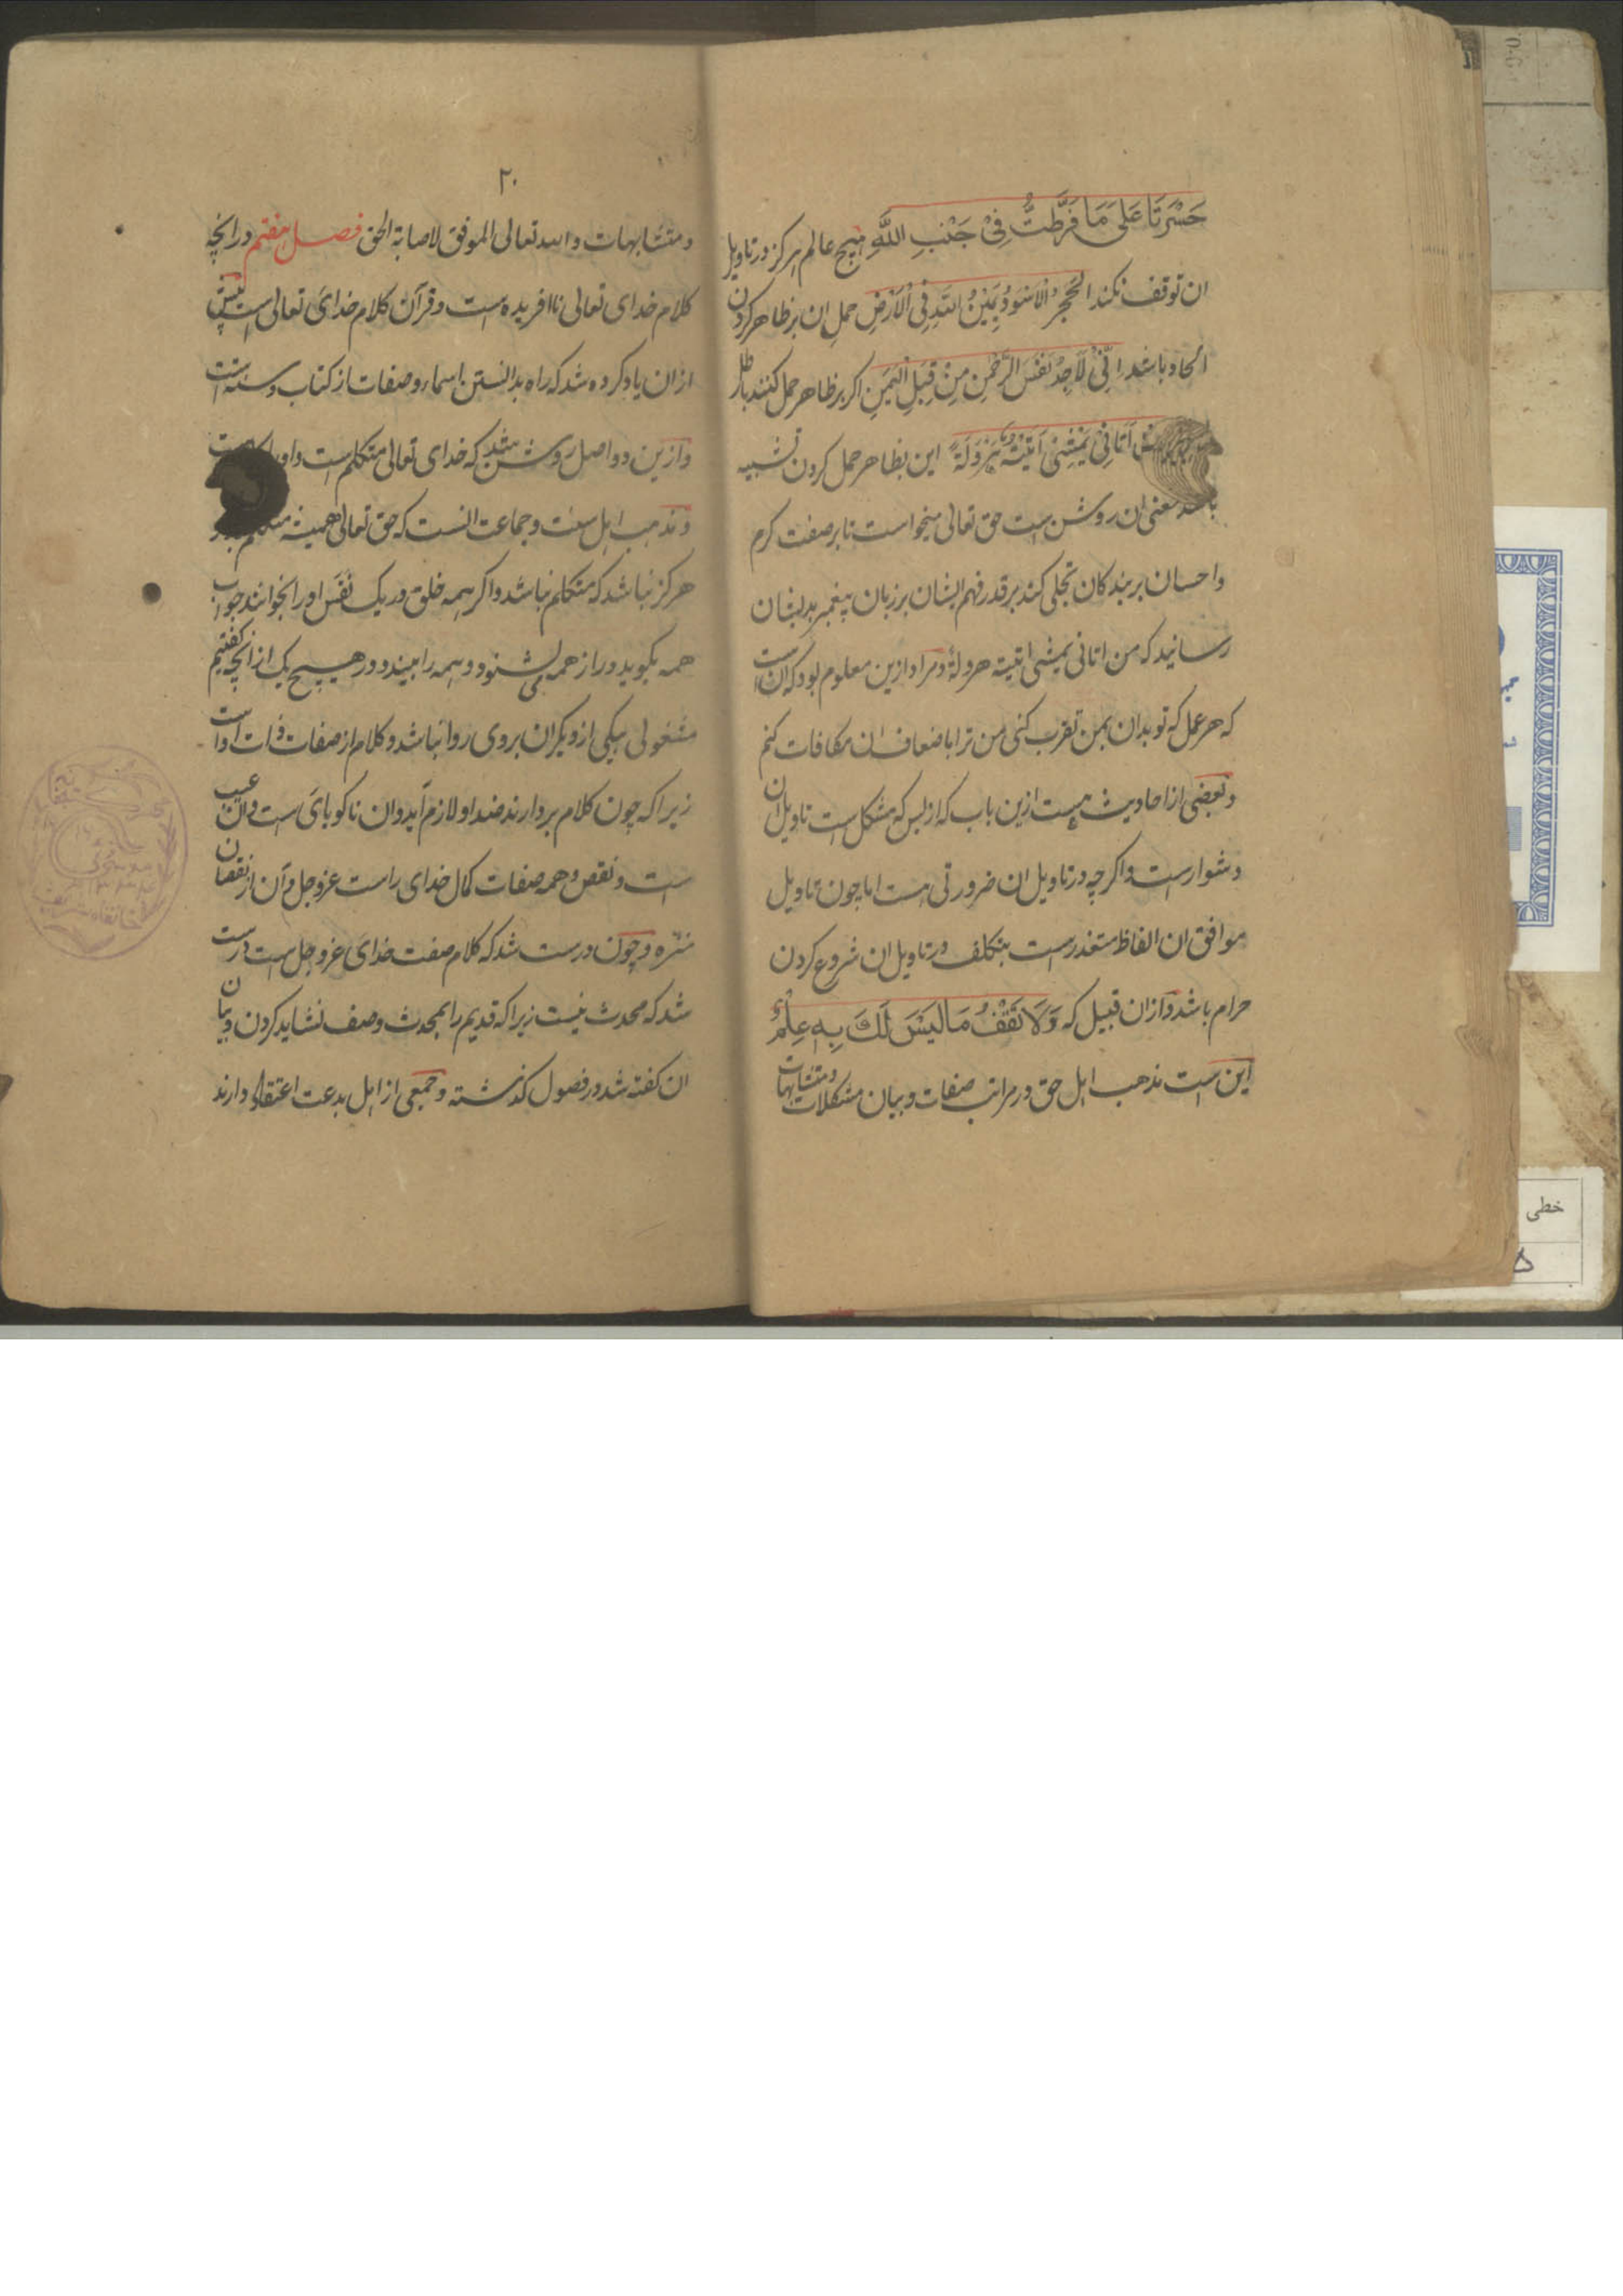 حَسْرَتَا عَلَى مَا فَرَّطْتُ فِيْ جَنْبِ اللَّهِ هیچ عالم هرکز در تاویل
ان توقف نکند الحَجَرُ الْاَسْوَدُ یَمِیْنُ اللهِ فِی الْاَرْضِ حمل ان بر ظاهر کردن
الحاد باشد اِنِّیْ لَاَجِدُ نَفَسَ الرَّحْمٰنِ مِنْ قِبَلِ الْیَمَنِ اکر بر ظاهر حمل کنند باطل
اَتَانِیْ یَمْشِیْ اَتَیْتُهُ هَرْوَلَةً این بظاهر حمل کردن تشبیه
باشد معنی ان روشن است حق تعالی میخواست تا بر صفت کرم
و احسان بر بندکان تجلی کند بر قدر فهم ایشان بر زبان پیغمبر بدیشان
رسانید که من اتانی یمشی اتیته هرولة و مراد ازین معلوم بود که آن است
که هر عمل که تو بدان بمن تقرب کنی من ترا باضعاف ان مکافات کنم
و بعضی از احادیث هست ازین باب که از بس که مشکل است تاویل ان
دشوارست و اکرچه در تاویل ان ضرورتی هست اما چون تاویل
موافق ان الفاظ متعذرست بتکلف در تاویل ان شروع کردن
حرام باشد و ازان قبیل که وَلَا تَقْفُ مَا لَیْسَ لَكَ بِهِ عِلْمٌ
این است مذهب اهل حق در مراتب صفات و بیان مشکلات و متشابهات
۲۰
و متشابهات و الله تعالی الموفق لاصابة الحق فصل هفتم در انچه
کلام خدای تعالی ناافریده است و قرآن کلام خدای تعالی است پیش
ازان یاد کرده شد که راه بدانستن اسماء و صفات از کتاب و سنت است
و ازین دو اصل روشن شد که خدای تعالی متکلم است و او را
و مذهب اهل سنت و جماعت انست که حق تعالی همیشه متکلم بود
هرکز نباشد که متکلم نباشد و اکر همه خلق در یک نَفَس او را بخوانند جواب
همه بکوید و راز همه می شنود و همه را بیند و در هیچ یک از انچه کفتیم
مشغولی بیکی از دیکران بروی روا نباشد و کلام از صفات ذات است
زیرا که چون کلام بردارند ضد او لازم آید و ان ناکویای است و ان عیب
است و نقص و همه صفات کمال خدای راست عز و جل و آن از نقصان
منزه و چون درست شد که کلام صفت خدای عز و جل است درست
شد که محدث نیست زیرا که قدیم را بمحدث وصف نشاید کردن و بیان
ان کفته شد در فصول کذشته و جمعی از اهل بدعت اعتقاد دارند
خطی